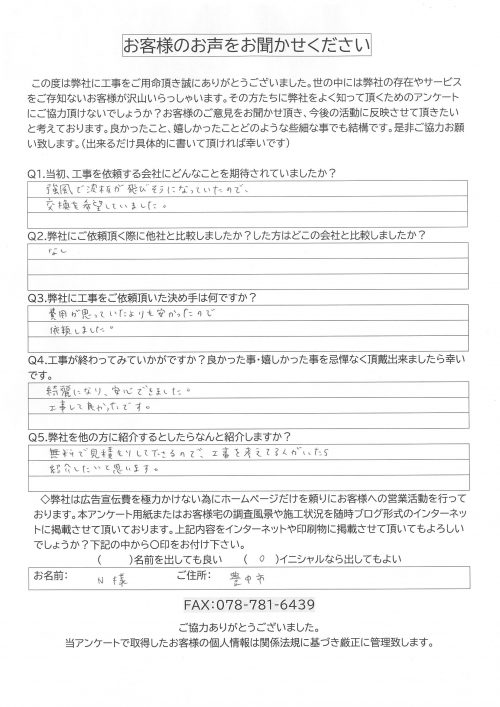 お客様のお声をお聞かせください
この度は弊社に工事をご用命頂き誠にありがとうございました。世の中には弊社の存在やサービス
をご存知ないお客様が沢山いらっしゃいます。その方たちに弊社をよく知って頂くためのアンケート
にご協力頂けないでしょうか？お客様のご意見をお聞かせ頂き、今後の活動に反映させて頂きたい
と考えております。良かったこと、嬉しかったことどのような些細な事でも結構です。是非ご協力お願
い致します。（出来るだけ具体的に書いて頂ければ幸いです）
Q1.当初、工事を依頼する会社にどんなことを期待されていましたか？
強風で波板が飛びそうになっていたので、
交換を希望していました。
Q2.弊社にご依頼頂く際に他社と比較しましたか？した方はどこの会社と比較しましたか？
なし
Q3.弊社に工事をご依頼頂いた決め手は何ですか？
費用が思っていたよりも安かったので
依頼しました。
Q4.工事が終わってみていかがですか？良かった事・嬉しかった事を忌憚なく頂戴出来ましたら幸い
です。
綺麗になり、安心できました。
工事して良かったです。
Q5.弊社を他の方に紹介するとしたらなんと紹介しますか？
無料で見積もりしてくださるので、工事を考えてる人がいたら
紹介したいと思います。
◇弊社は広告宣伝費を極力かけない為にホームページだけを頼りにお客様への営業活動を行って
おります。本アンケート用紙またはお客様宅の調査風景や施工状況を随時ブログ形式のインターネッ
トに掲載させて頂いております。上記内容をインターネットや印刷物に掲載させて頂いてもよろしい
でしょうか？下記の中から〇印をお付け下さい。
（　）名前を出しても良い （ ○ ）イニシャルなら出してもよい
お名前： N 様 ご住所： 豊中市
FAX：078-781-6439
ご協力ありがとうございました。
当アンケートで取得したお客様の個人情報は関係法規に基づき厳正に管理致します。